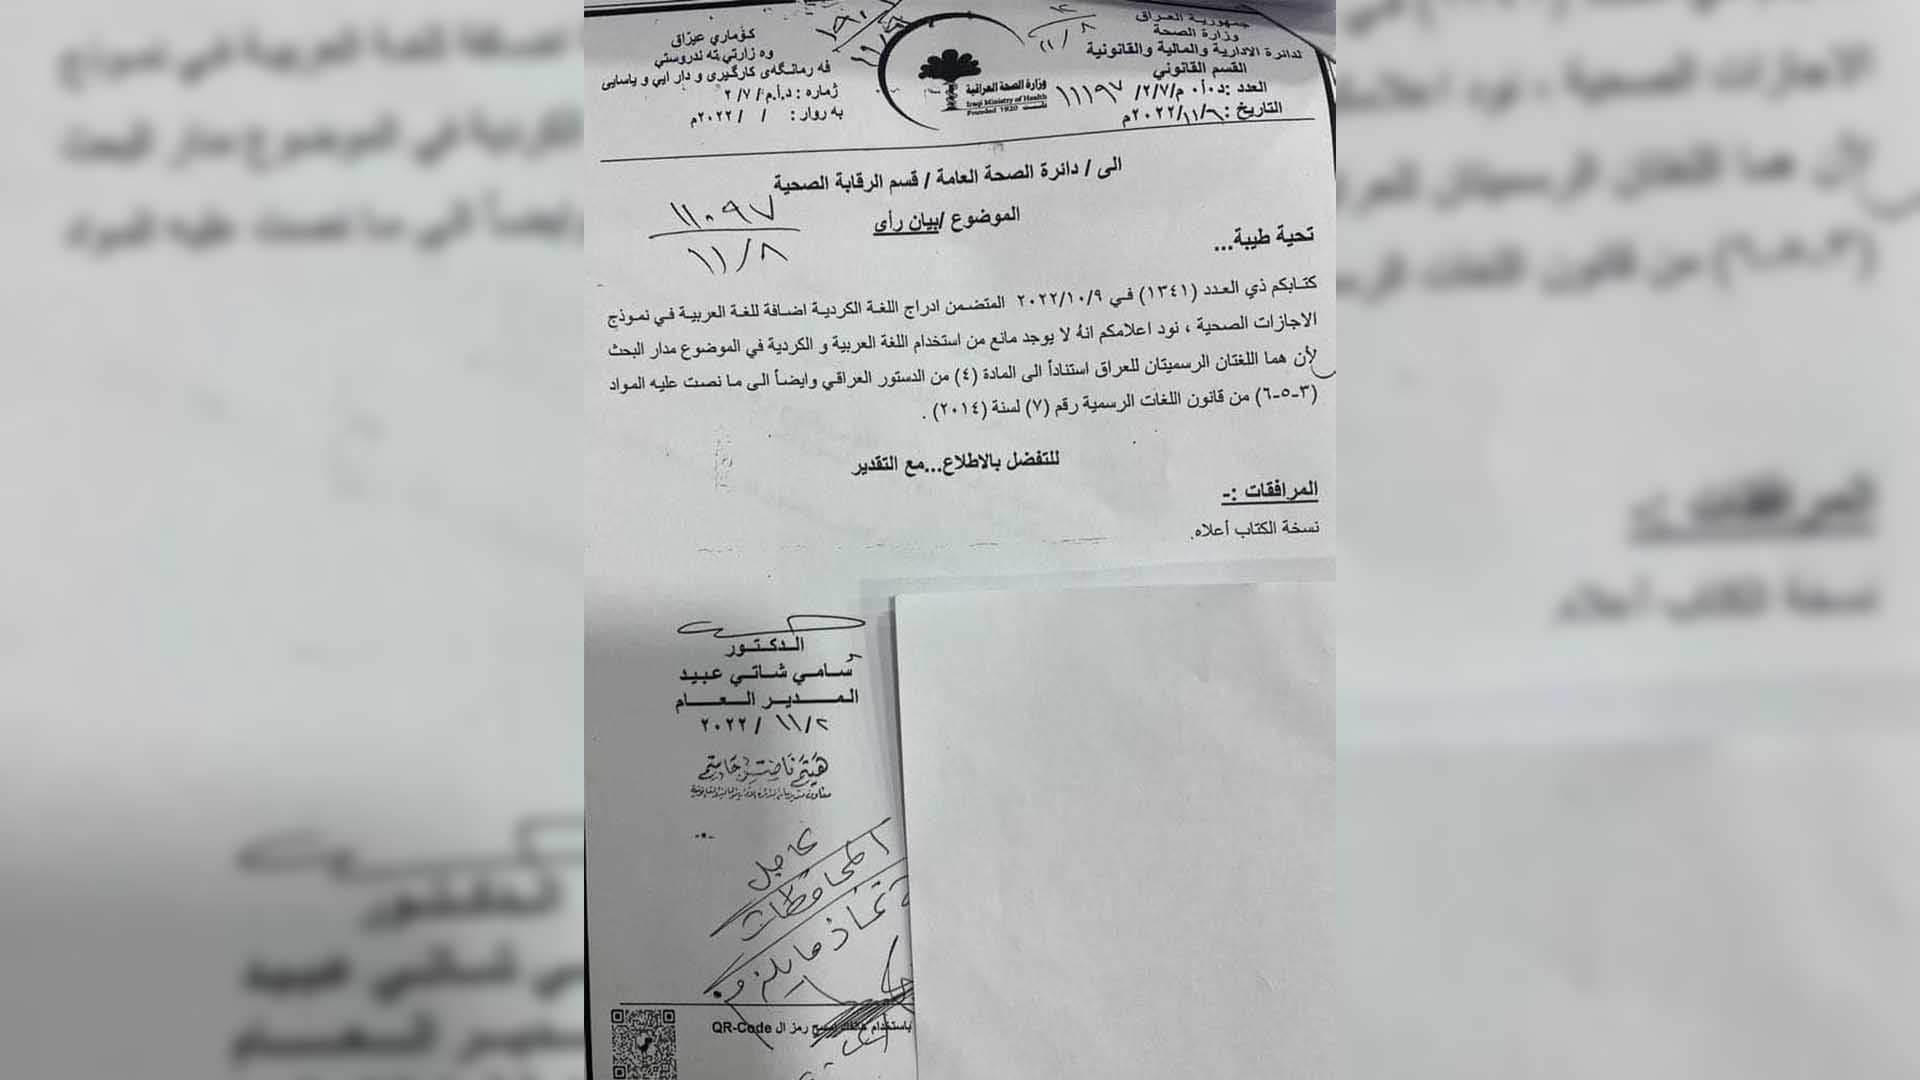 جمهورية العراق
وزارة الصحة
لدائرة الادارية والمالية والقانونية
القسم القانوني
العدد :د٠أ٠ م/٢/٧/ ١١١٩٧
التاريخ : ٢٠٢٢/١١/٦م
١١/٨
كـۆماري عيراق
وه زارتي ته ندروستي
فه رمانگه‌ی کارگیری و دار ايي و ياسايى
ژماره : د.أ.م / ٧/ ٢
به روار : / / ٢٠٢٢م
وزارة الصحة العراقية
Iraqi Ministry of Health
Founded 1920 تأسست
الى / دائرة الصحة العامة / قسم الرقابة الصحية
١١٠٩٧
١١/٨
الموضوع /بيان رأى
تحية طيبة...
كتابكم ذي العدد (١٣٤١) في ٢٠٢٢/١٠/٩ المتضمن ادراج اللغة الكردية اضافة للغة العربية في نموذج
الاجازات الصحية ، نود اعلامكم انهُ لا يوجد مانع من استخدام اللغة العربية و الكردية في الموضوع مدار البحث
لأن هما اللغتان الرسميتان للعراق استناداً الى المادة (٤) من الدستور العراقي وايضاً الى ما نصت عليه المواد
(٣-٥-٦) من قانون اللغات الرسمية رقم (٧) لسنة (٢٠١٤) .
للتفضل بالاطلاع...مع التقدير
المرافقات :-
نسخة الكتاب أعلاه.
الدكتور
سامي شاتي عبيد
المدير العام
٢٠٢٢/ ١١/٢
عاجل
المحافظات
باستخدام هاتفك امسح رمز ال QR-Code